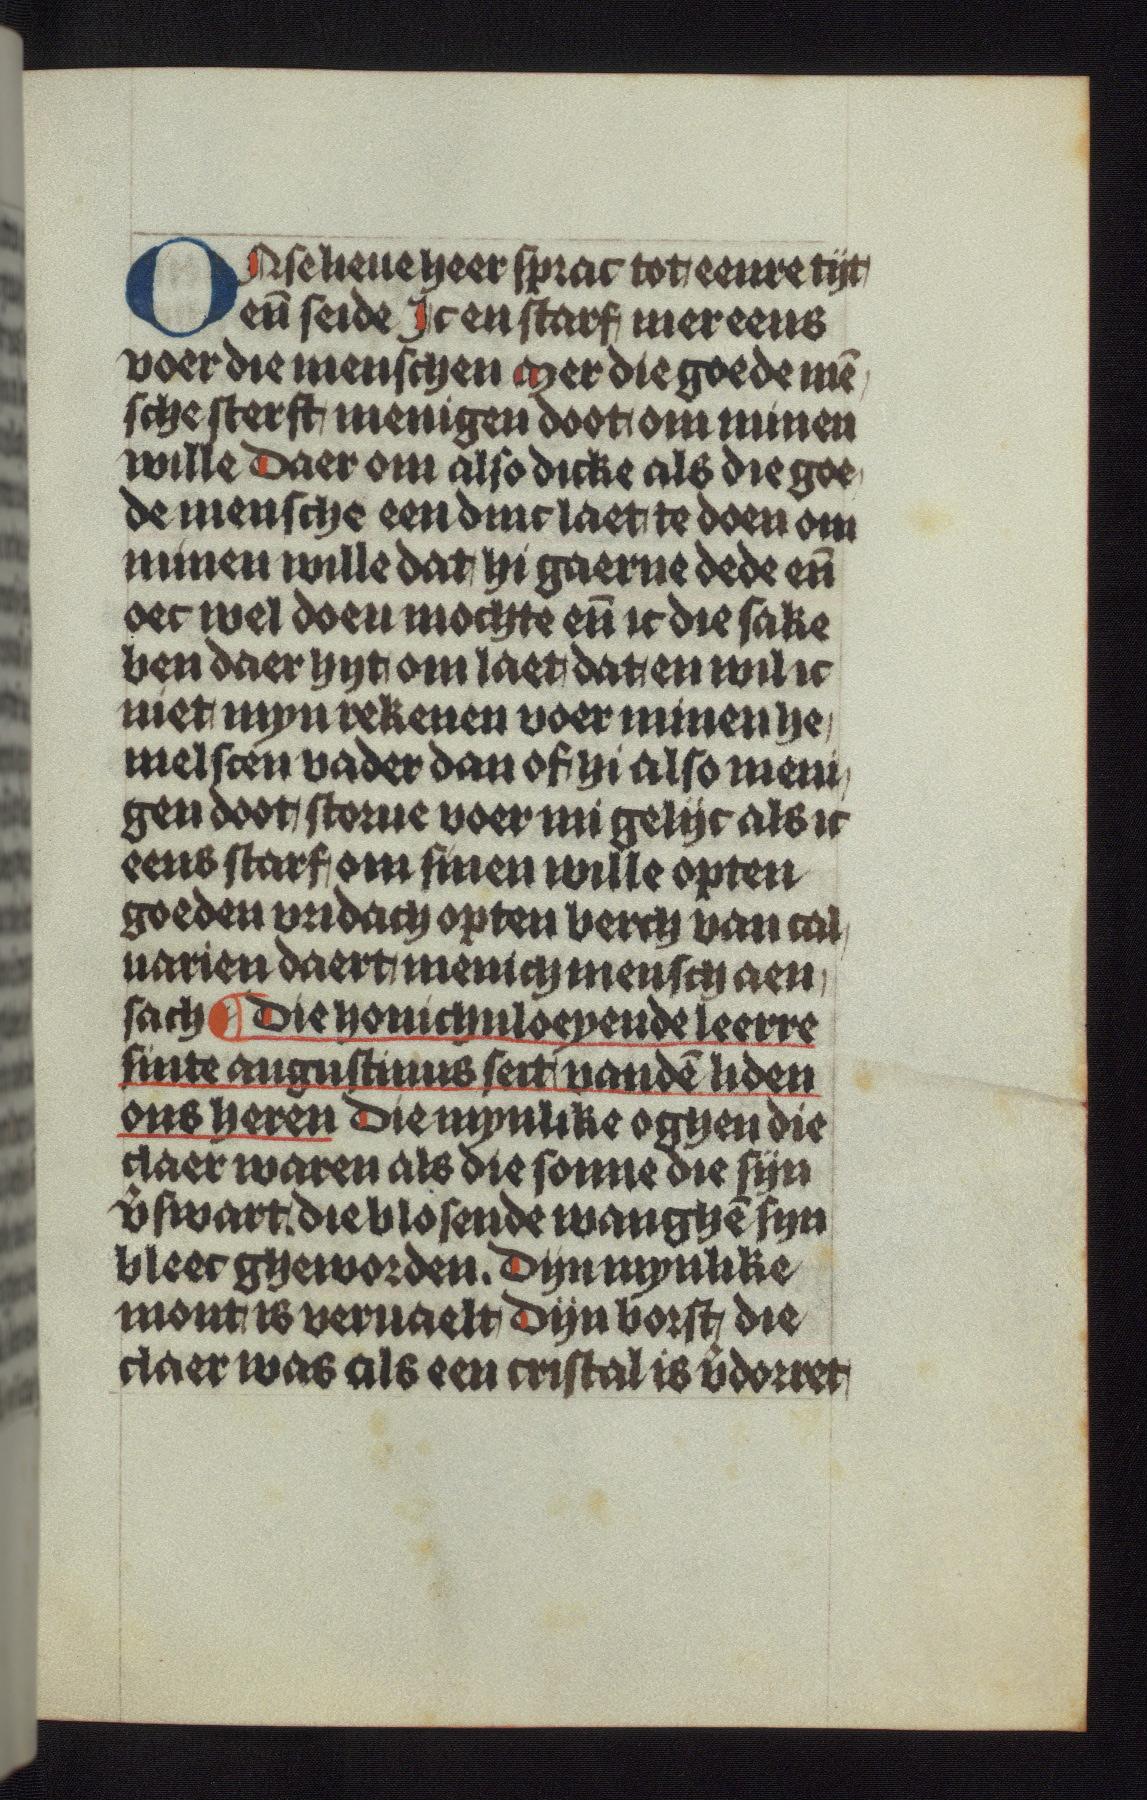 ONse lieue heer sprac tot eenre tijt
en̄ seide Ic en starf mer eens
voer die menschen Mer die goede mē
sche sterft menigen doot om minen
wille Daer om also dicke als die goe
de mensche een dinc laet te doen om
minen wille dat hi gaerne dede en̄
oec wel doen mochte en̄ ic die sake
ben daer hijt om laet dat en wil ic
niet myn rekenen voer minen he
melscen vader dan of hi also meni
gen doot storue voer mi gelijc als ic
eens starf om sinen wille opten
goeden vridach opten berch van cal
uarien daert menich mensch aen
sach ¶ Die honichuloeyende leerre
sinte augustinus seit vandē liden
ons heren Die mynlike oghen die
claer waren als die sonne die sijn
v̄swart. die blosende wanghē sijn
bleec gheworden. Dijn mynlike
mont is veruaelt Dijn borst die
claer was als een cristal is v̄dorret